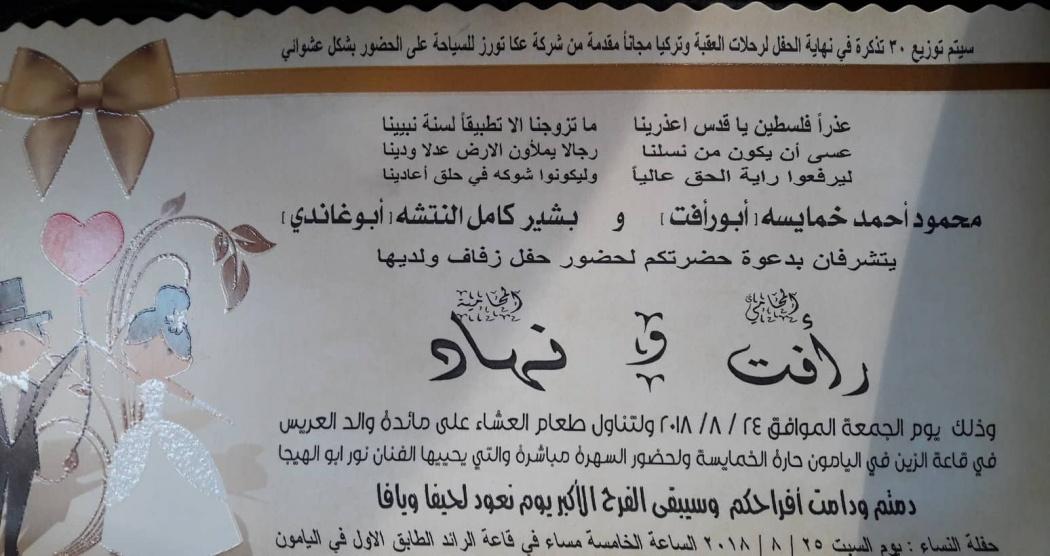 سيتم توزيع ٣٠ تذكرة في نهاية الحفل لرحلات العقبة وتركيا مجاناً مقدمة من شركة عكا تورز للسياحة على الحضور بشكل عشوائي
عذراً فلسطين يا قدس اعذرينا ما تزوجنا الا تطبيقاً لسنة نبيينا
عسى أن يكون من نسلنا رجالا يملأون الارض عدلا ودينا
ليرفعوا راية الحق عالياً وليكونوا شوكه في حلق أعادينا
محمود أحمد خمايسه [أبورأفت] و بشير كامل النتشه [أبوغاندي]
يتشرفان بدعوة حضرتكم لحضور حفل زفاف ولديها
المحامي المحامية
رأفت و نهاد
وذلك يوم الجمعة الموافق ٢٤ / ٨/ ٢٠١٨ ولتناول طعام العشاء على مائدة والد العريس
في قاعة الزين في اليامون حارة الخمايسة ولحضور السهرة مباشرة والتي يحييها الفنان نور ابو الهيجا
دمتم ودامت أفراحكم وسيبقى الفرح الأكبر يوم نعود لحيفا ويافا
حفلة النساء : يوم السبت ٢٥ / ٨ / ٢٠١٨ الساعة الخامسة مساء في قاعة الرائد الطابق الاول في اليامون